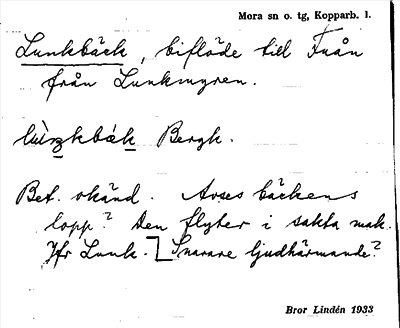 Mora sn o. tg, Kopparb. l.
Lunkbäck, biflöde till Fuån
från Lunkmyren.
Bergk.
Bet. okänd. Avses bäckens
lopp? Den flyter i sakta mak.
Jfr Lunk. Snarare ljudhärmande?
Bror Lindén 1933